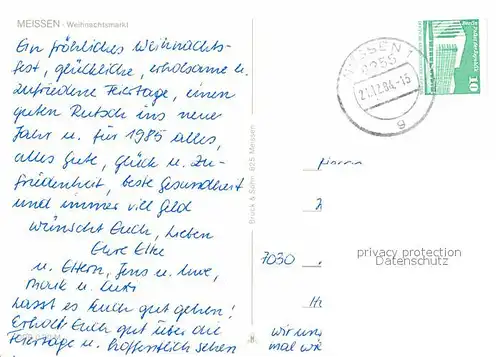 MEISSEN · Weihnachtsmarkt
Ein fröhliches Weihnachts-
fest, glückliche, erholsame u.
zufriedene Feiertage, einen
guten Rutsch ins neue
Jahr u. für 1985 alles,
alles Gute, Glück u. Zu-
friedenheit, beste Gesundheit
und immer viel Geld
wünscht Euch, Lieben
Eure Elke
u. Eltern, Jens u. Uwe,
Maik u.
Lasst es Euch gut gehen!
Erholt Euch gut über die
Feiertage u. hoffentlich sehen
Brück & Sohn · 825 Meissen
MEISSEN 1
8250
21.12.84.-15
10
7030
privacy protection
Datenschutz
wir uns
mal wie